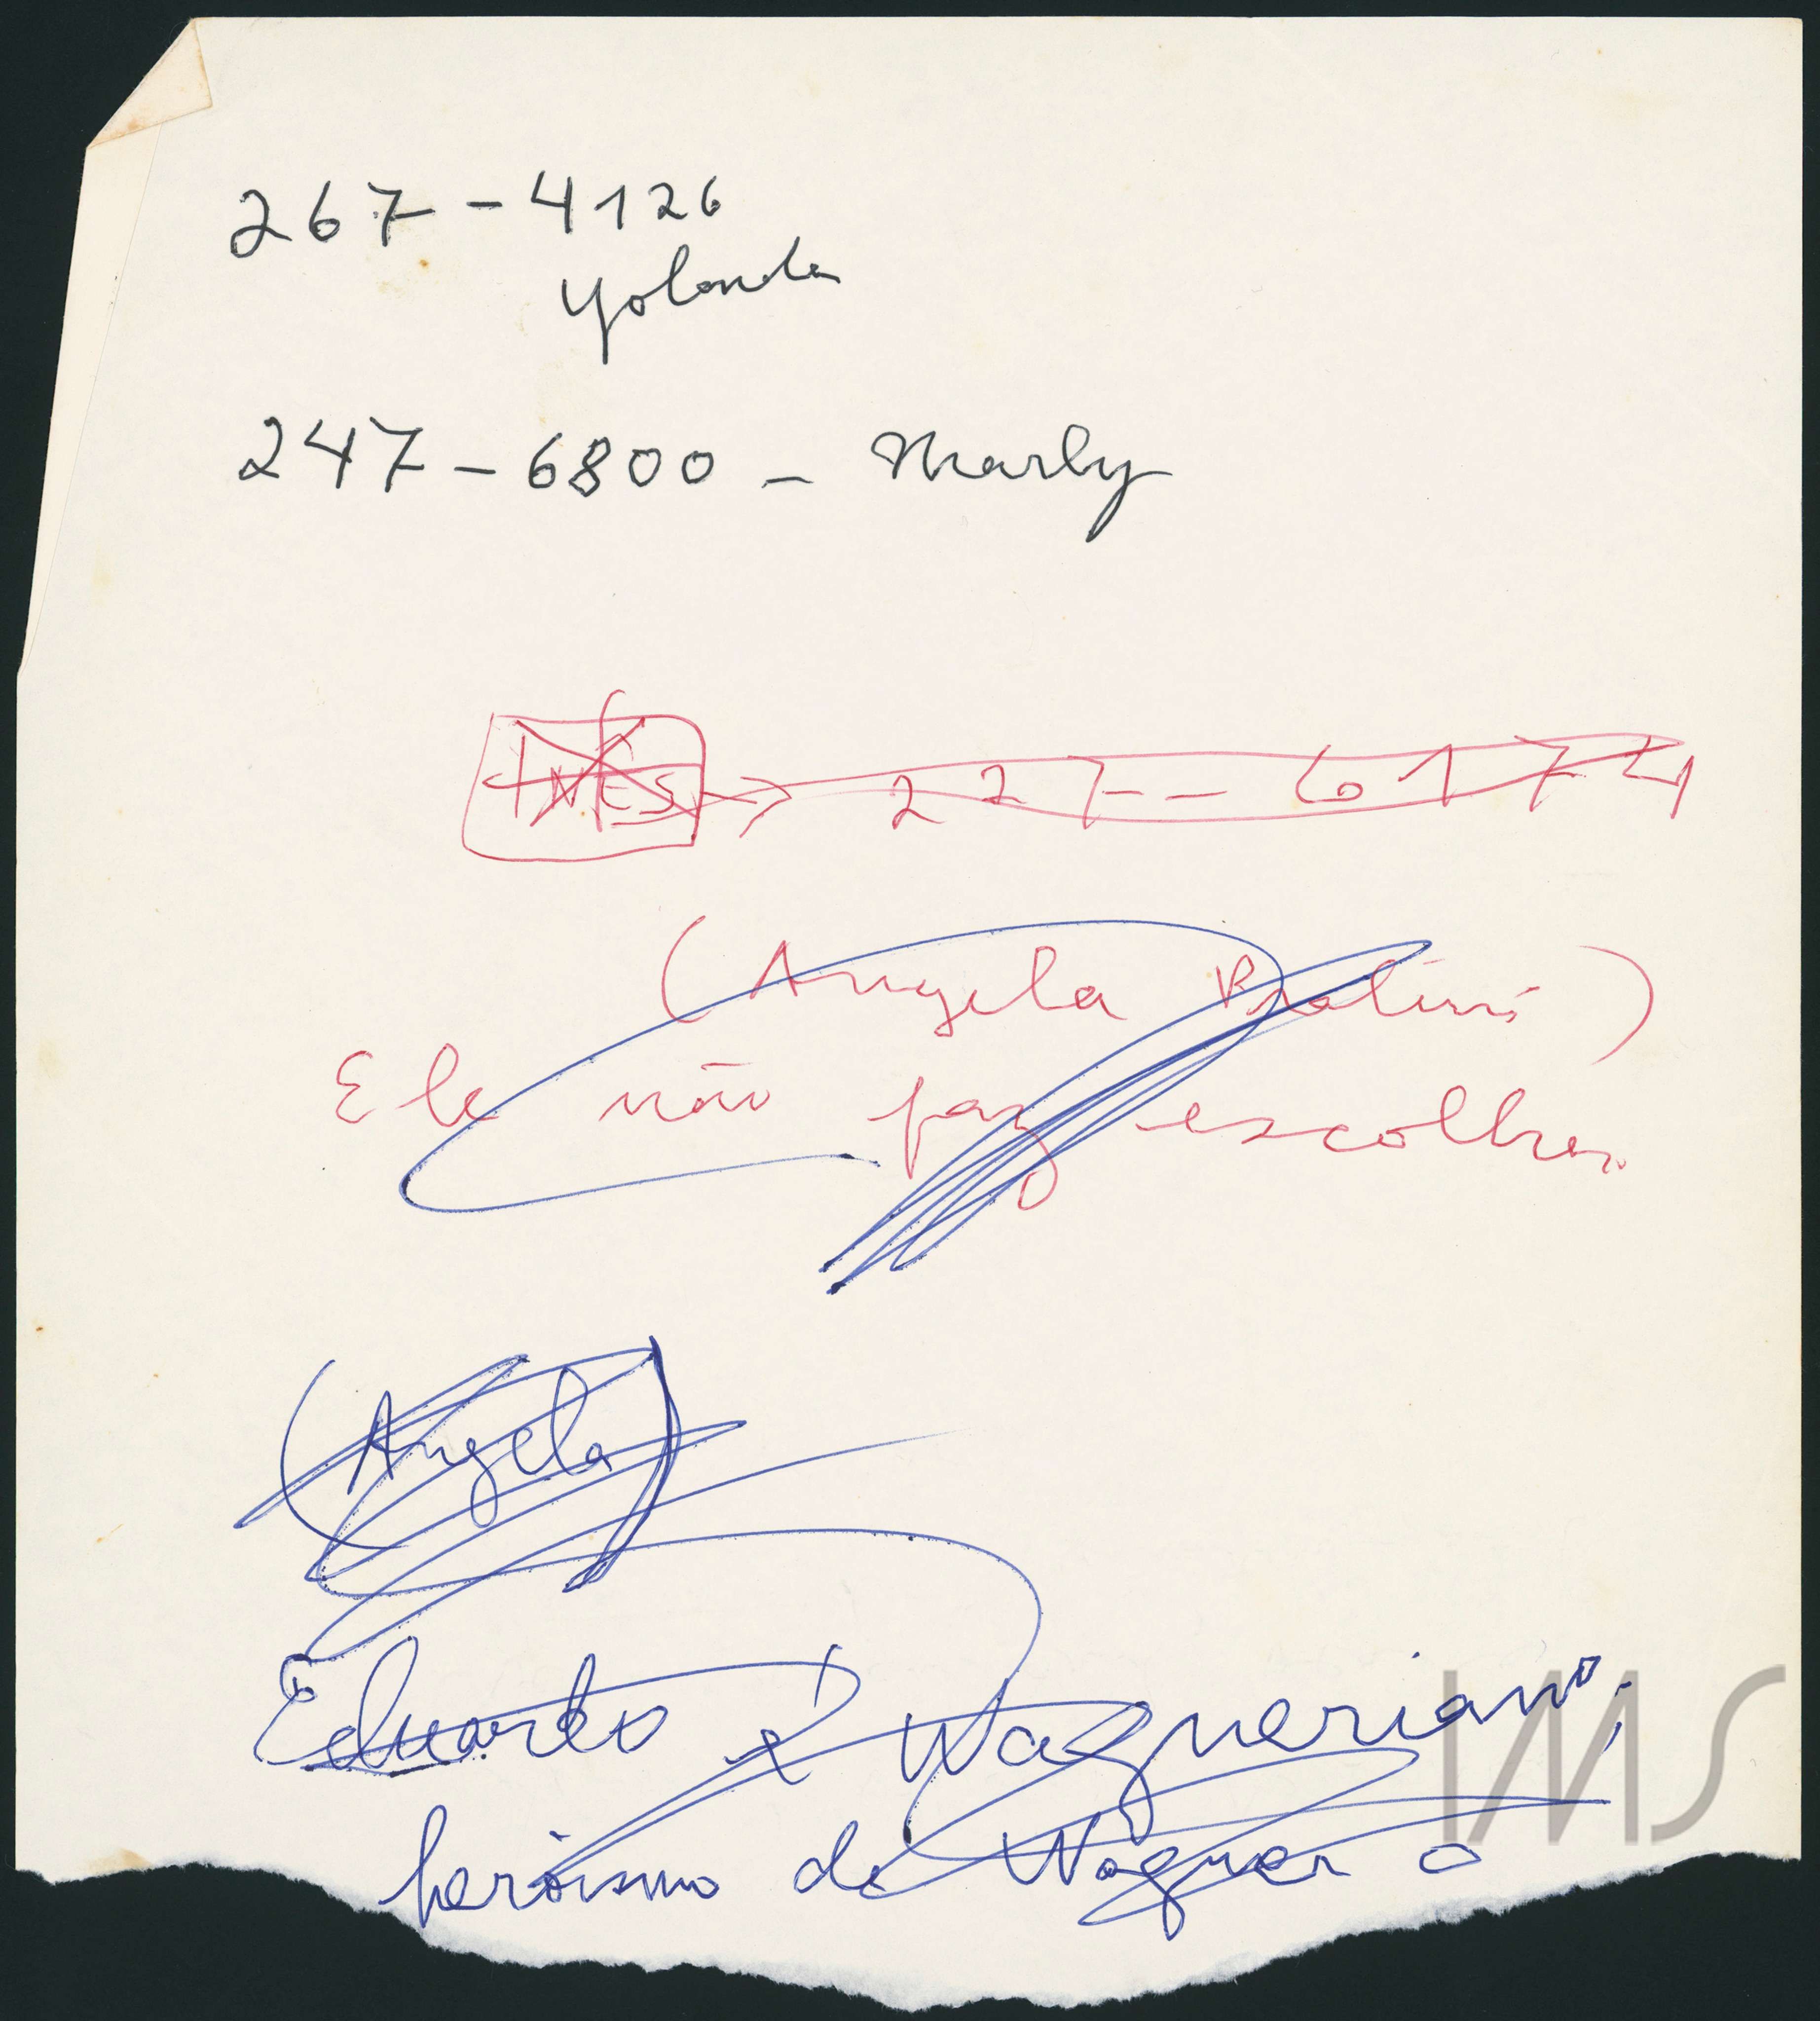 267-4126
Yolanda
247-6800 - Marly
INÊS → 227-6174
(Angela Pralini)
Ele não faz escolhas.
(Angela)
Eduardo é Wagneriano;
heroismo de Wagner o
IMS